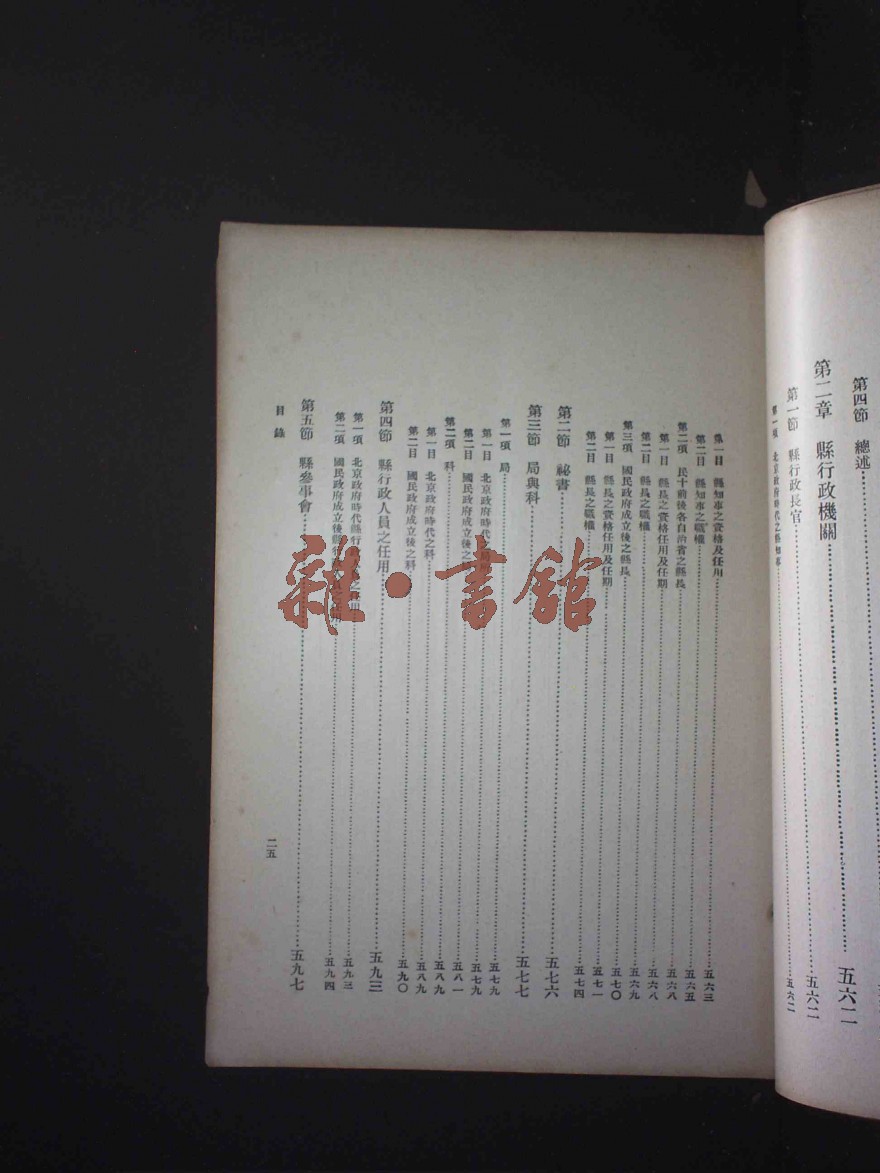 第四節 總述
第二章 縣行政機關……五六二
第一節 縣行政長官……五六二
第一項 北京政府時代之縣知事……五六二
第一目 縣知事之資格及任用……五六三
第二目 縣知事之職權……五六五
第二項 民十前後各自治省之縣長……五六八
第一目 縣長之資格任用及任期……五六八
第二目 縣長之職權……五六九
第三項 國民政府成立後之縣長……五七〇
第一目 縣長之資格任用及任期……五七一
第二目 縣長之職權……五七四
第二節 祕書……五七六
第三節 局與科……五七七
第一項 局……五七九
第一目 北京政府時代……五七九
第二目 國民政府成立後之……五八一
第二項 科……五八九
第一目 北京政府時代之科……五八九
第二目 國民政府成立後之科……五九〇
第四節 縣行政人員之任用……五九三
第一項 北京政府時代縣行政人員之任用……五九三
第二項 國民政府成立後縣行政人員之任用……五九四
第五節 縣參事會……五九七
目錄
二五
雜·書館